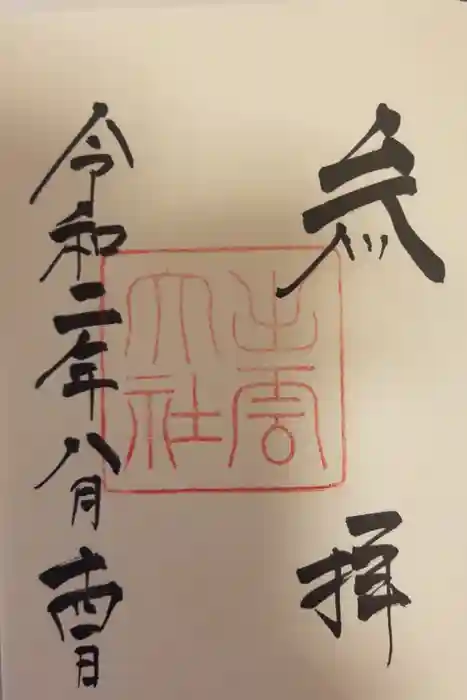 参拝
出雲
大社
令和二年八月十四日